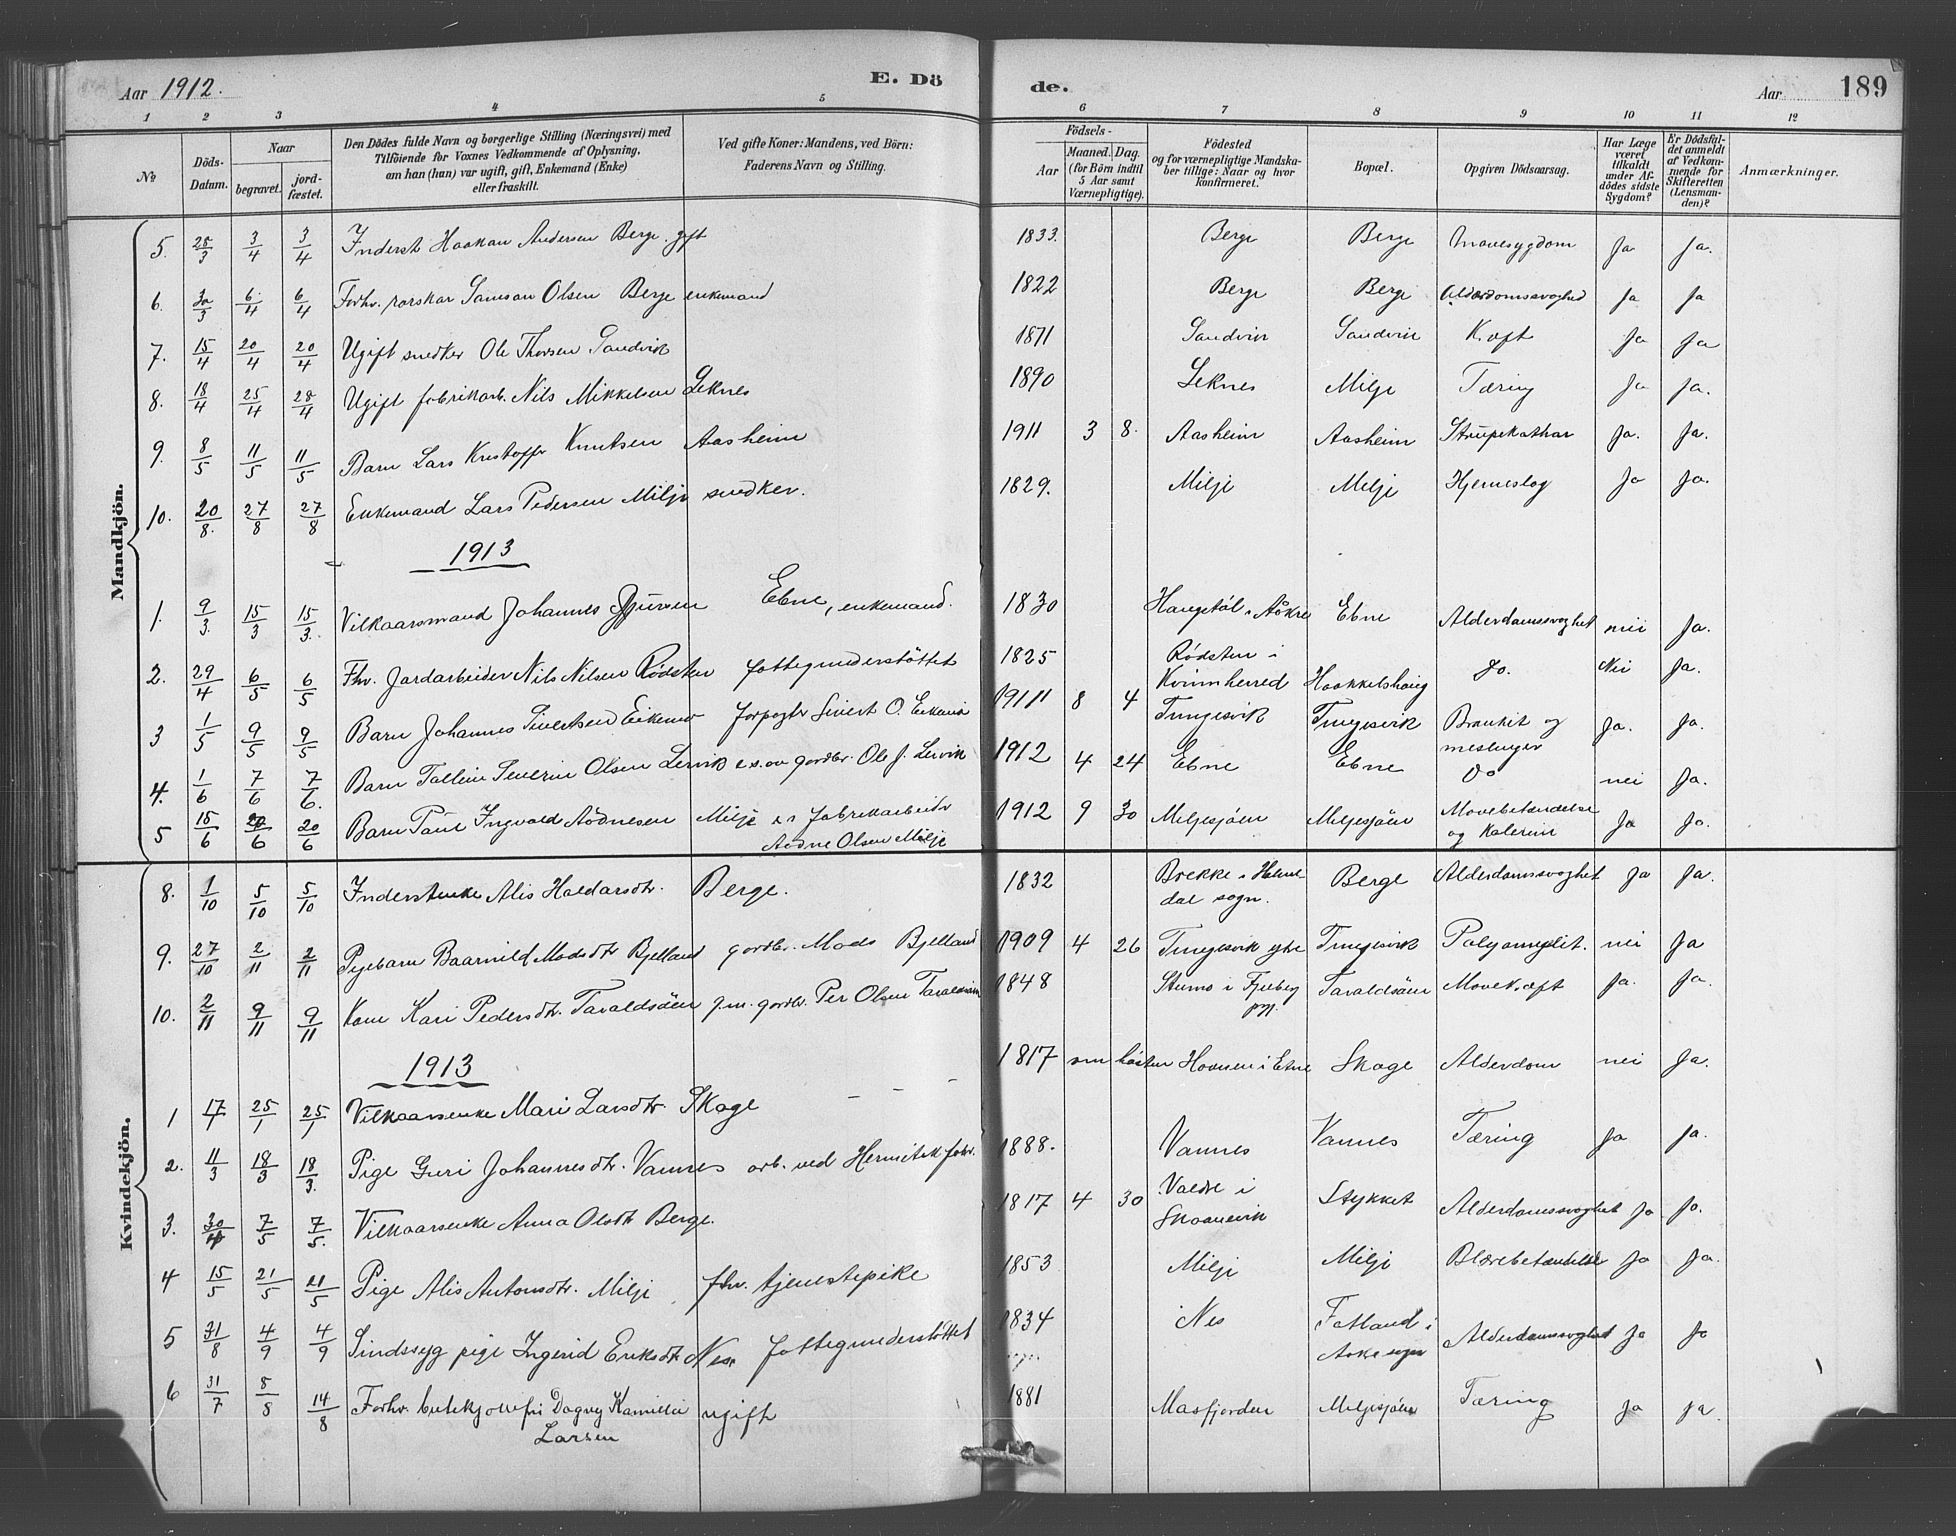 Aar 1912. E. Dö
de. Aar 189
1 2 3 4 5 6 7 8 9 10 11 12
№
Döds-Datum.
Naar
begravet.
jord-fæstet.
Den Dödes fulde Navn og borgerlige Stilling (Næringsvei) med
Tilföiende for Voxnes Vedkommende af Oplysning,
om han (hun) var ugift, gift, Enkemand (Enke)
eller fraskilt.
Ved gifte Koner: Mandens, ved Börn:
Faderens Navn og Stilling.
Födsels-
Aar
Maaned. Dag.
(for Börn indtil
5 Aar samt
Værnepligtige).
Födested
og for værnepligtige Mandska-
ber tillige: Naar og hvor
konfirmeret.
Bopæl.
Opgiven Dödsaarsag.
Har Læge
været
tilkaldt
under Af-
dödes sidste
Sygdom?
Er Dödsfal-
det anmeldt
af Vedkom-
mende for
Skifteretten
(Lensman-
den)?
Anmærkninger.
Mandkjön.
5. 28/3 3/4 3/4 Inderst Haakan Andersen Berge. gift 1833. Berge Berge Mavesygdom Ja Ja.
6. 30/3 6/4 6/4 Forhv. Samson Olsen Berge enkemand 1822 Berge Berge Alderdomssvaghed Ja Ja
7. 15/4 20/4 20/4 Ugift snedker Ole Thorsen Sandvik 1871 Sandvin Sandvin Kræft Ja Ja
8. 18/4 25/4 28/4 Ugift fabrikarb. Nils Mikkelsen Leknes 1890 Leknes Milje Tæring Ja Ja.
9. 8/5 11/5 11/5 Barn Lars Kristoffer Knutsen Aasheim 1911 3 8. Aasheim Aasheim Strupekathar Ja. Ja.
10. 20/8. 27/8 27/8 Enkemand Lars Pedersen Milje snedker. 1829. Milje Milje Hjerneslag Ja Ja.
1913
1. 9/3. 15/3 15/3. Vilkaarsmand Johannes Ebne, enkemand. 1830 i Aakre Ebne Alderdomssvaghet nei Ja.
2. 29/4 6/5 6/5 Fhv. Jordarbeider Nils Nilsen Rødsten fattigunderstöttet 1825 Rødsten i
Kvinnherred Do. Nei Ja.
3 1/5 9/5 9/5 Barn Johannes Sivertsen Eikemo forpagter Sivert O. 1911 8 4 Tungesvik Tungesvik Bronkit og
meslinger Ja. Ja.
4. 1/6 7/6 7/6. Barn Severin Olsen Lervik gardbr. Ole J. Lervik 1912 4 24 Ebne Ebne Do nei Ja.
5 15/6 20/6 20/6 Barn Paul Ingvald Aadnesen Milje fabrikarbeider
Aadne Olsen Milje 1912 9 30 Miljesjöen Miljesjöen Mavebetændelse
og Ja Jo.
Kvindekjön.
8. 1/10 5/10 5/10 Inderstenke Alis Haldorsdtr. Berge. 1832 Brekke i
dal sogn. Berge Alderdomssvaghet Ja Ja.
9. 27/10 2/11 2/11 Pigebarn Madsdtr Bjelland gardbr. Mads Bjelland 1909 4 26 Tungesvik Tungesvik nei Ja
10. 2/11 9/11 9/11 Kone Kari Pedersdtr. Taraldsöen g.m. gardbr. Per Olsen 1848 i Fjelberg
Taraldsöen Mavekræft Ja. Ja.
1913
1 17/1 25/1 25/1 Vilkaarsenke Mari Larsdtr. Skage 1817 om hösten i Etne Skage Alderdom nei Ja.
2. 11/3 18/3 18/3. Pige Guri Johannesdtr. Vannes arb. ved Hermetik fabr. 1888. Vannes Vannes Tæring Ja Ja.
3. 30/4 7/5 7/5. Vilkaarsenke Anna Olsdtr Berge. 1817 4 30 i
Skaanevik Stykket Alderdomssvaghet Ja Jo.
4 15/5 21/5 21/5 Pige Alis Antonsdtr. Milje fhv. tjenestepike 1853 Milje Milje Blærebetændelse Ja Ja.
5 31/8 4/9 4/9 Sindssyg pige Ingerid Eriksdtr Nes. fattigunderstöttet 1834 Nes Fatland i
Aakre sogn Alderdomssvaghet Ja Ja
6 31/7 8/8 14/8 Forhv. Dagny Kamilla
Larsen ugift 1881 Masfjorden Miljesjöen Tæring Ja Ja.